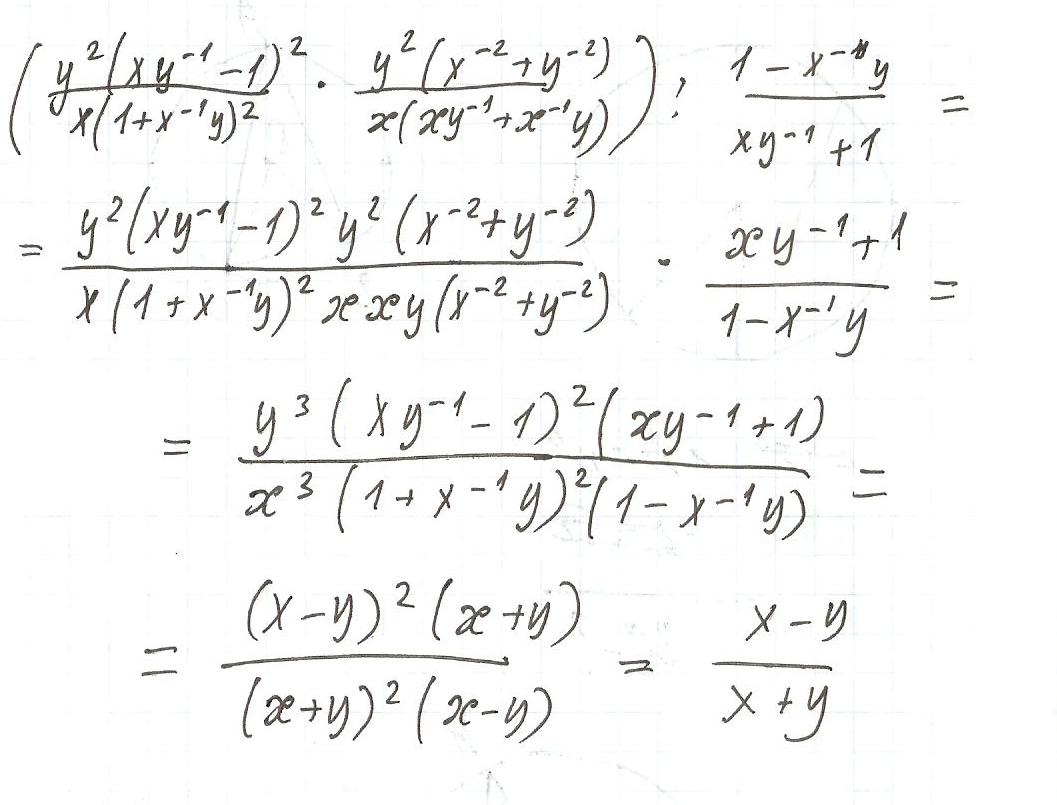 ( y²(xy⁻¹-1)² / x(1+x⁻¹y)² · y²(x⁻²+y⁻²) / x(xy⁻¹+x⁻¹y) ) : (1-x⁻¹y) / (xy⁻¹+1) =
= y²(xy⁻¹-1)² y²(x⁻²+y⁻²) / x(1+x⁻¹y)² x·xy(x⁻²+y⁻²) · (xy⁻¹+1) / (1-x⁻¹y) =
= y³(xy⁻¹-1)²(xy⁻¹+1) / x³(1+x⁻¹y)²(1-x⁻¹y) =
= (x-y)²(x+y) / (x+y)²(x-y) = (x-y) / (x+y)